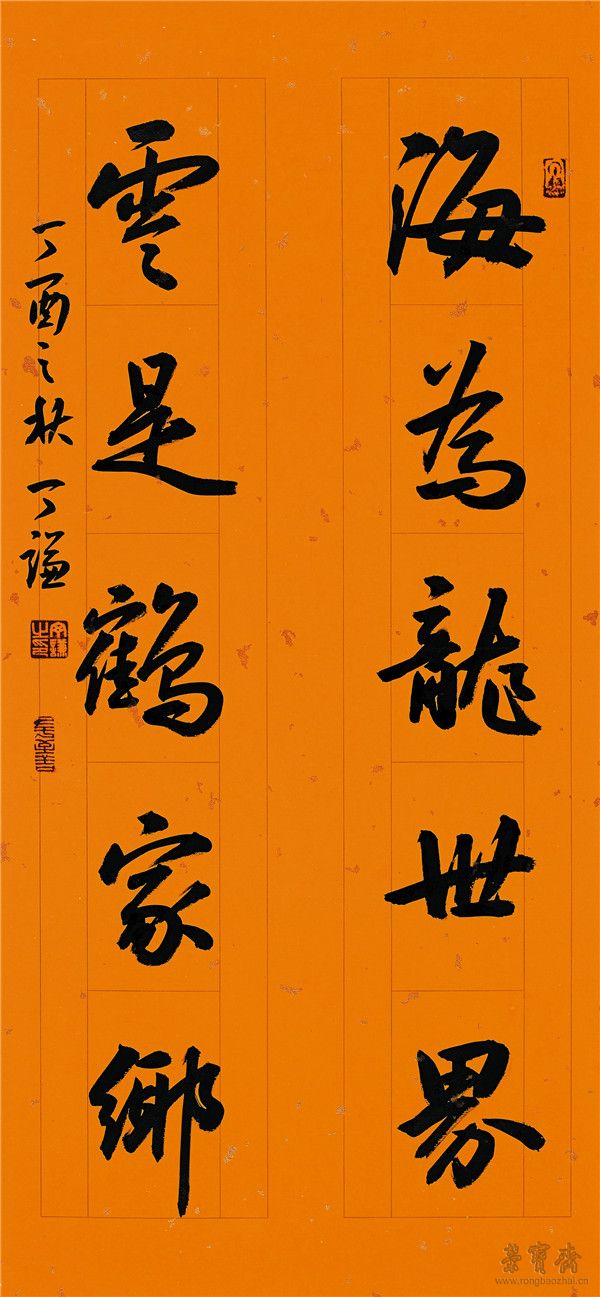 海為龍世界
雲是鶴家鄉
丁酉之秋 丁謙
榮寶齋
www.rongbaozhai.cn